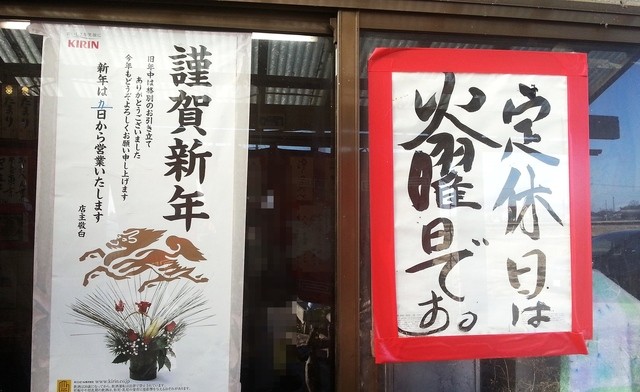 KIRIN
謹賀新年
旧年中は格別のお引き立て
ありがとうございました
今年もどうぞよろしくお願い申し上げます
新年は
日から営業いたします
店主敬白
www.kirin.co.jp
定休日は
火曜日です。